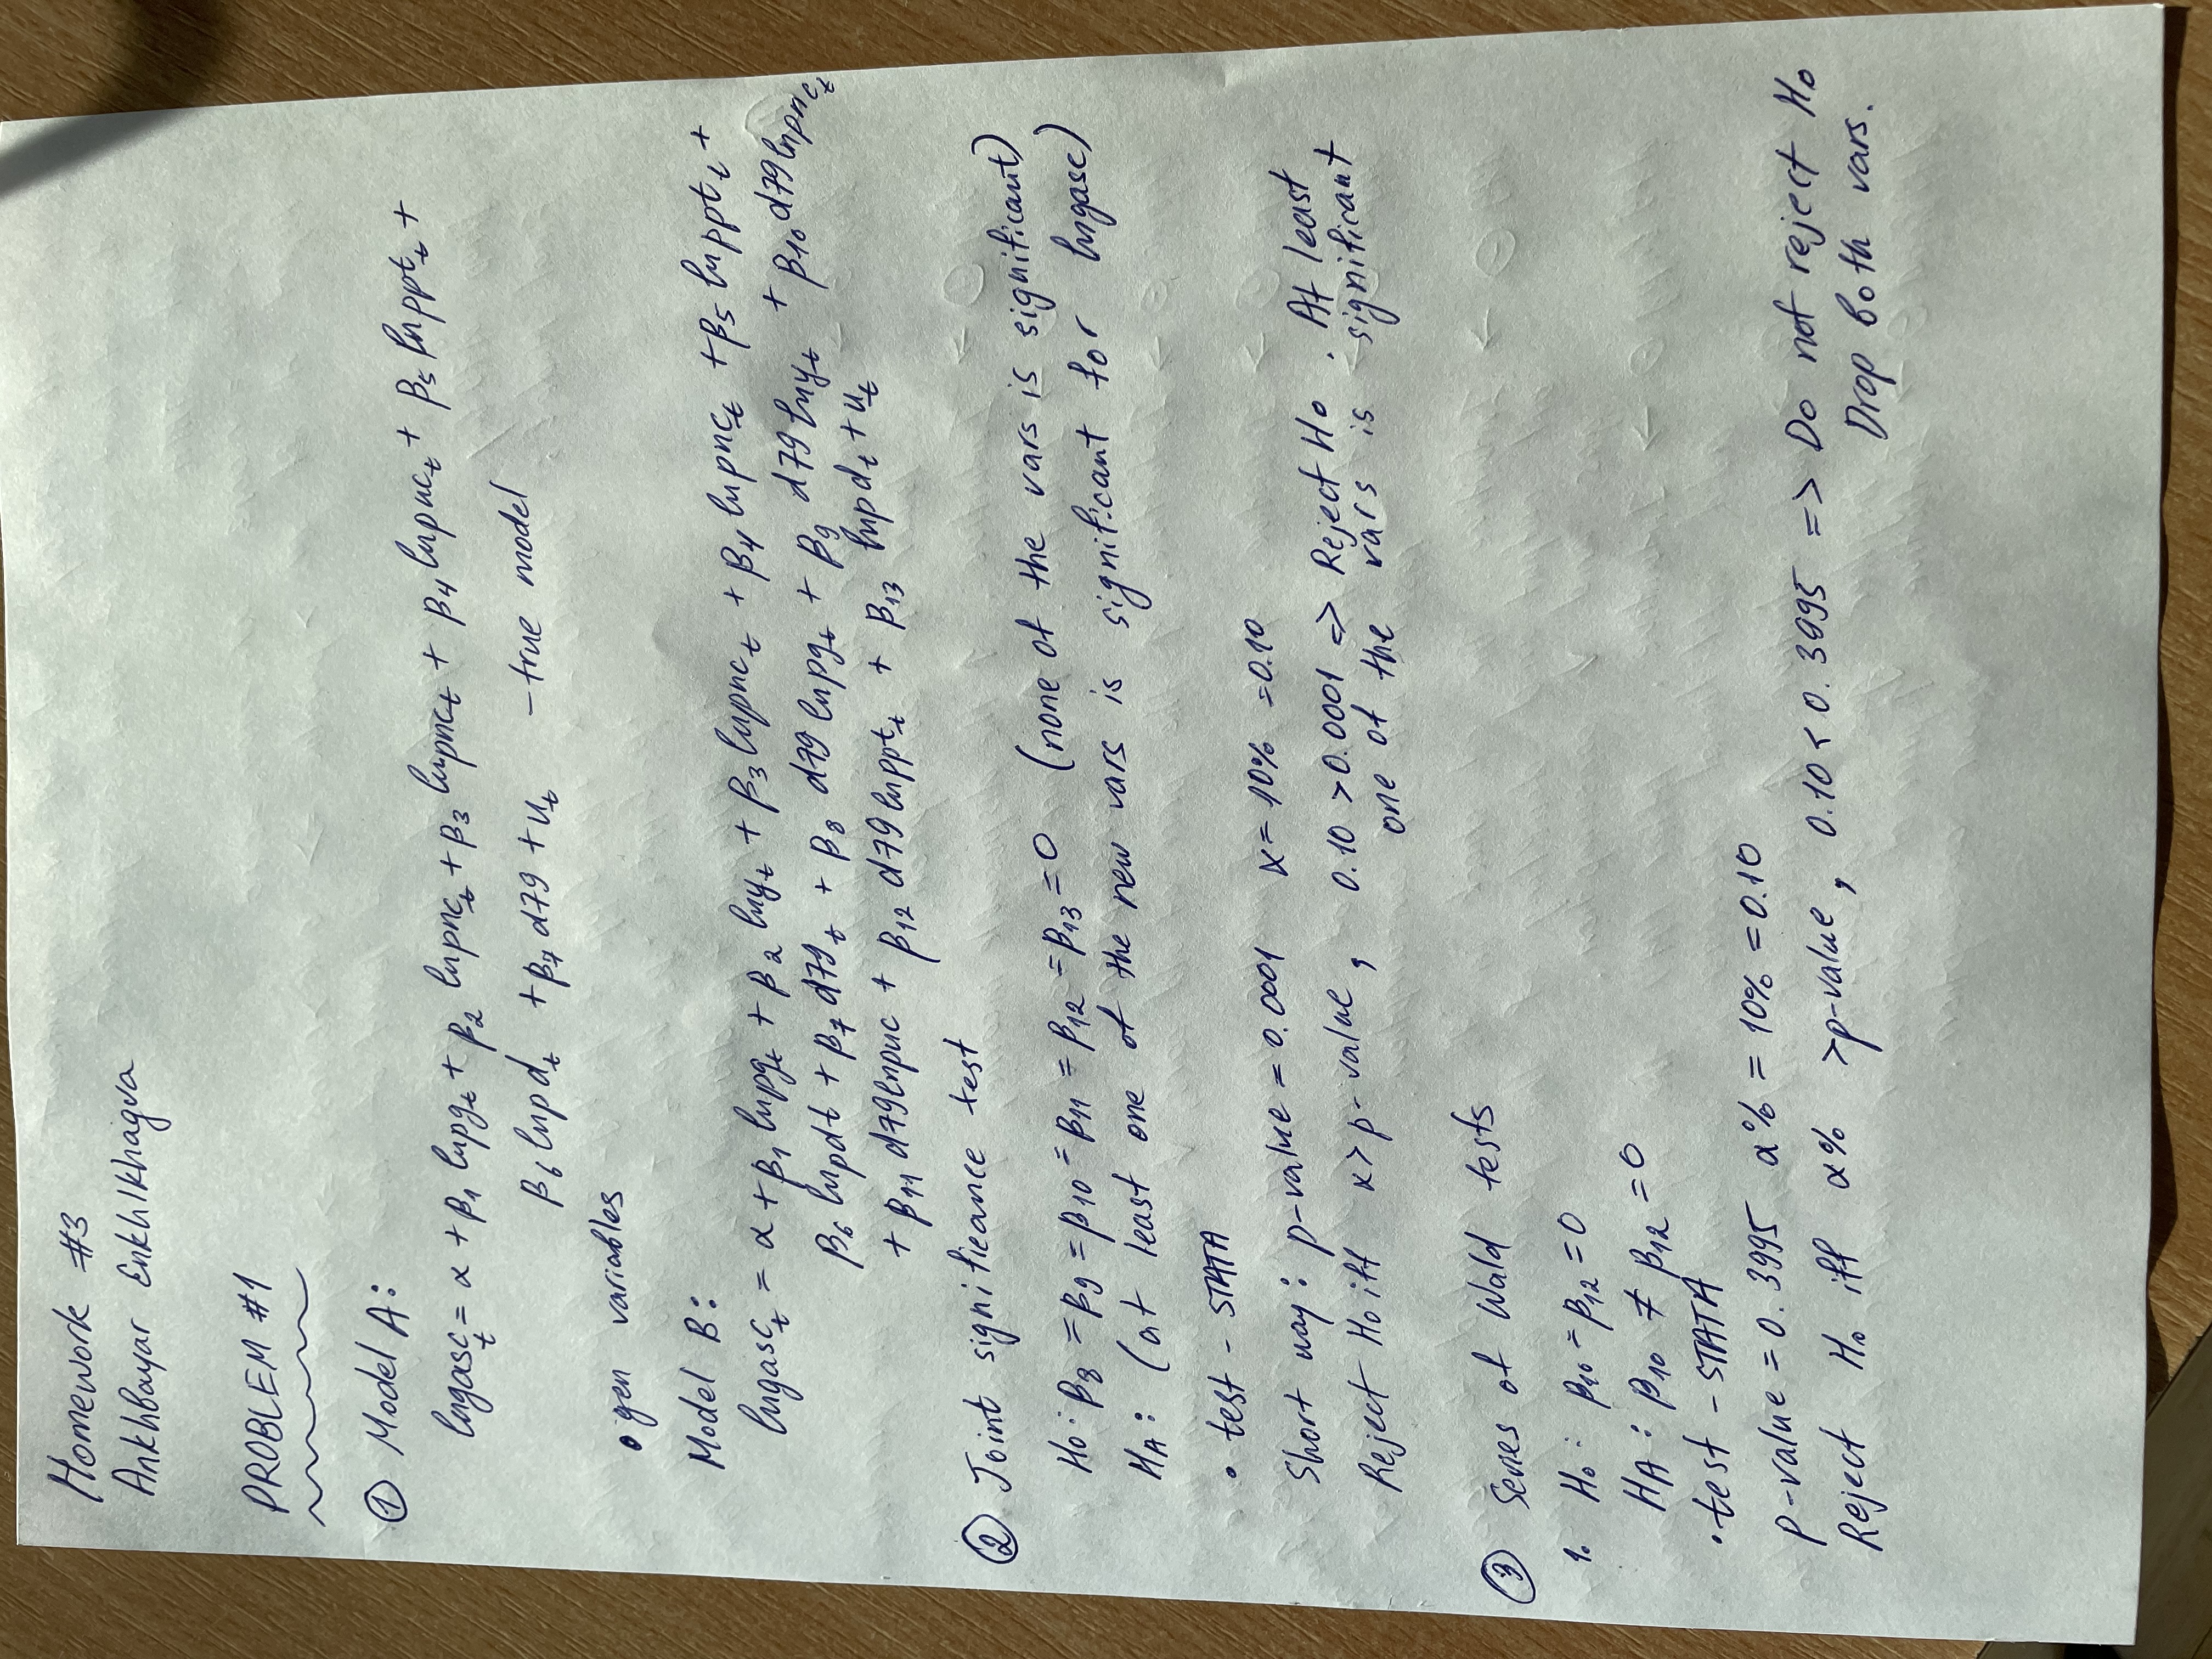 Homework #3
AnkhBayar Enkhlkhagva
PROBLEM #1
① Model A:
lngasc_t = α + β₁ lnpg_t + β₂ lnpnc_t + β₃ lnpnc_t + β₄ lnpuc_t + β₅ lnppt_t +
β₆ lnpd_t + β₇ d79 + u_t - true model
• gen variables
Model B:
lngasc_t = α + β₁ lnpg_t + β₂ lny_t + β₃ lnpnc_t + β₄ lnpnc_t + β₅ lnppt_t +
β₆ lnpdt + β₇ d79_t + β₈ d79 lnpg_t + β₉ d79 lny_t + β₁₀ d79lnpnc_t
+ β₁₁ d79lnpuc + β₁₂ d79lnppt_t + β₁₃ lnpd_t + u_t
② Joint significance test
H₀: β₈ = β₉ = β₁₀ = β₁₁ = β₁₂ = β₁₃ = 0 (none of the vars is significant)
H_A: (at least one of the new vars is significant for lngasc)
• test - STATA
Short way: p-value = 0.0001 α = 10% = 0.10
Reject H₀ iff α > p-value, 0.10 > 0.0001 => Reject H₀. At least
one of the vars is significant
③ Series of Wald tests
1. H₀: β₁₀ = β₁₂ = 0
H_A: β₁₀ ≠ β₁₂ = 0
• test - STATA
p-value = 0.3995 α% = 10% = 0.10
Reject H₀ iff α% > p-value, 0.10 < 0.3995 => Do not reject H₀
Drop both vars.